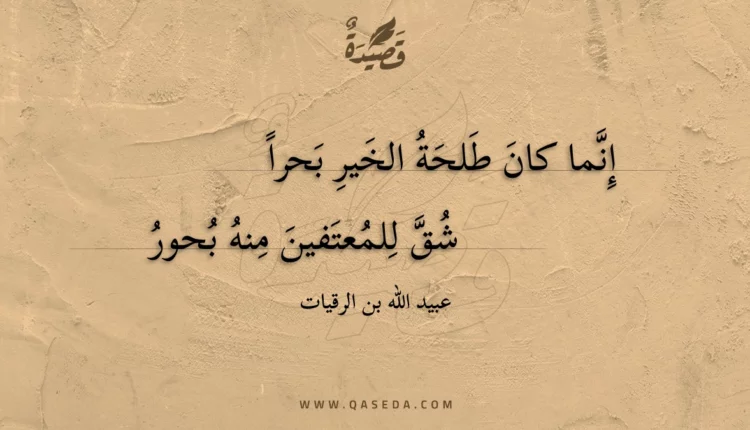 قَصِيدَةٌ
إِنَّما كانَ طَلحَةُ الخَيرِ بَحراً
شُقَّ لِلمُعتَفينَ مِنهُ بُحورُ
عبيد الله بن الرقيات
WWW.QASEDA.COM